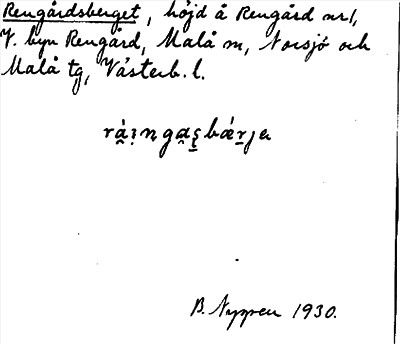 Rengårdsberget, höjd å Rengård nr 1,
V. byn Rengård, Malå sn, Norsjö och
Malå tg, Västerb. l.
B. Nyppen 1930.